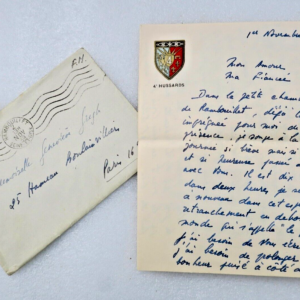 F.M.
Mademoiselle
25 Hameau Boulainvilliers
Paris 16
4e HUSSARDS
1er Novembre
Mon Amour,
Ma Fiancée
Dans la petite cham
de Rambouillet, déjà
imprégnée pour moi de
présence, je songe à la
journée si brève mais si
et si heureuse passée
avec vous. Il est dix
dans deux heures je s
à nouveau dans cet
retranchement en deho
monde qui s'appelle le
j'ai besoin de vous
j'ai besoin de prolonger
bonheur puisé à côté d